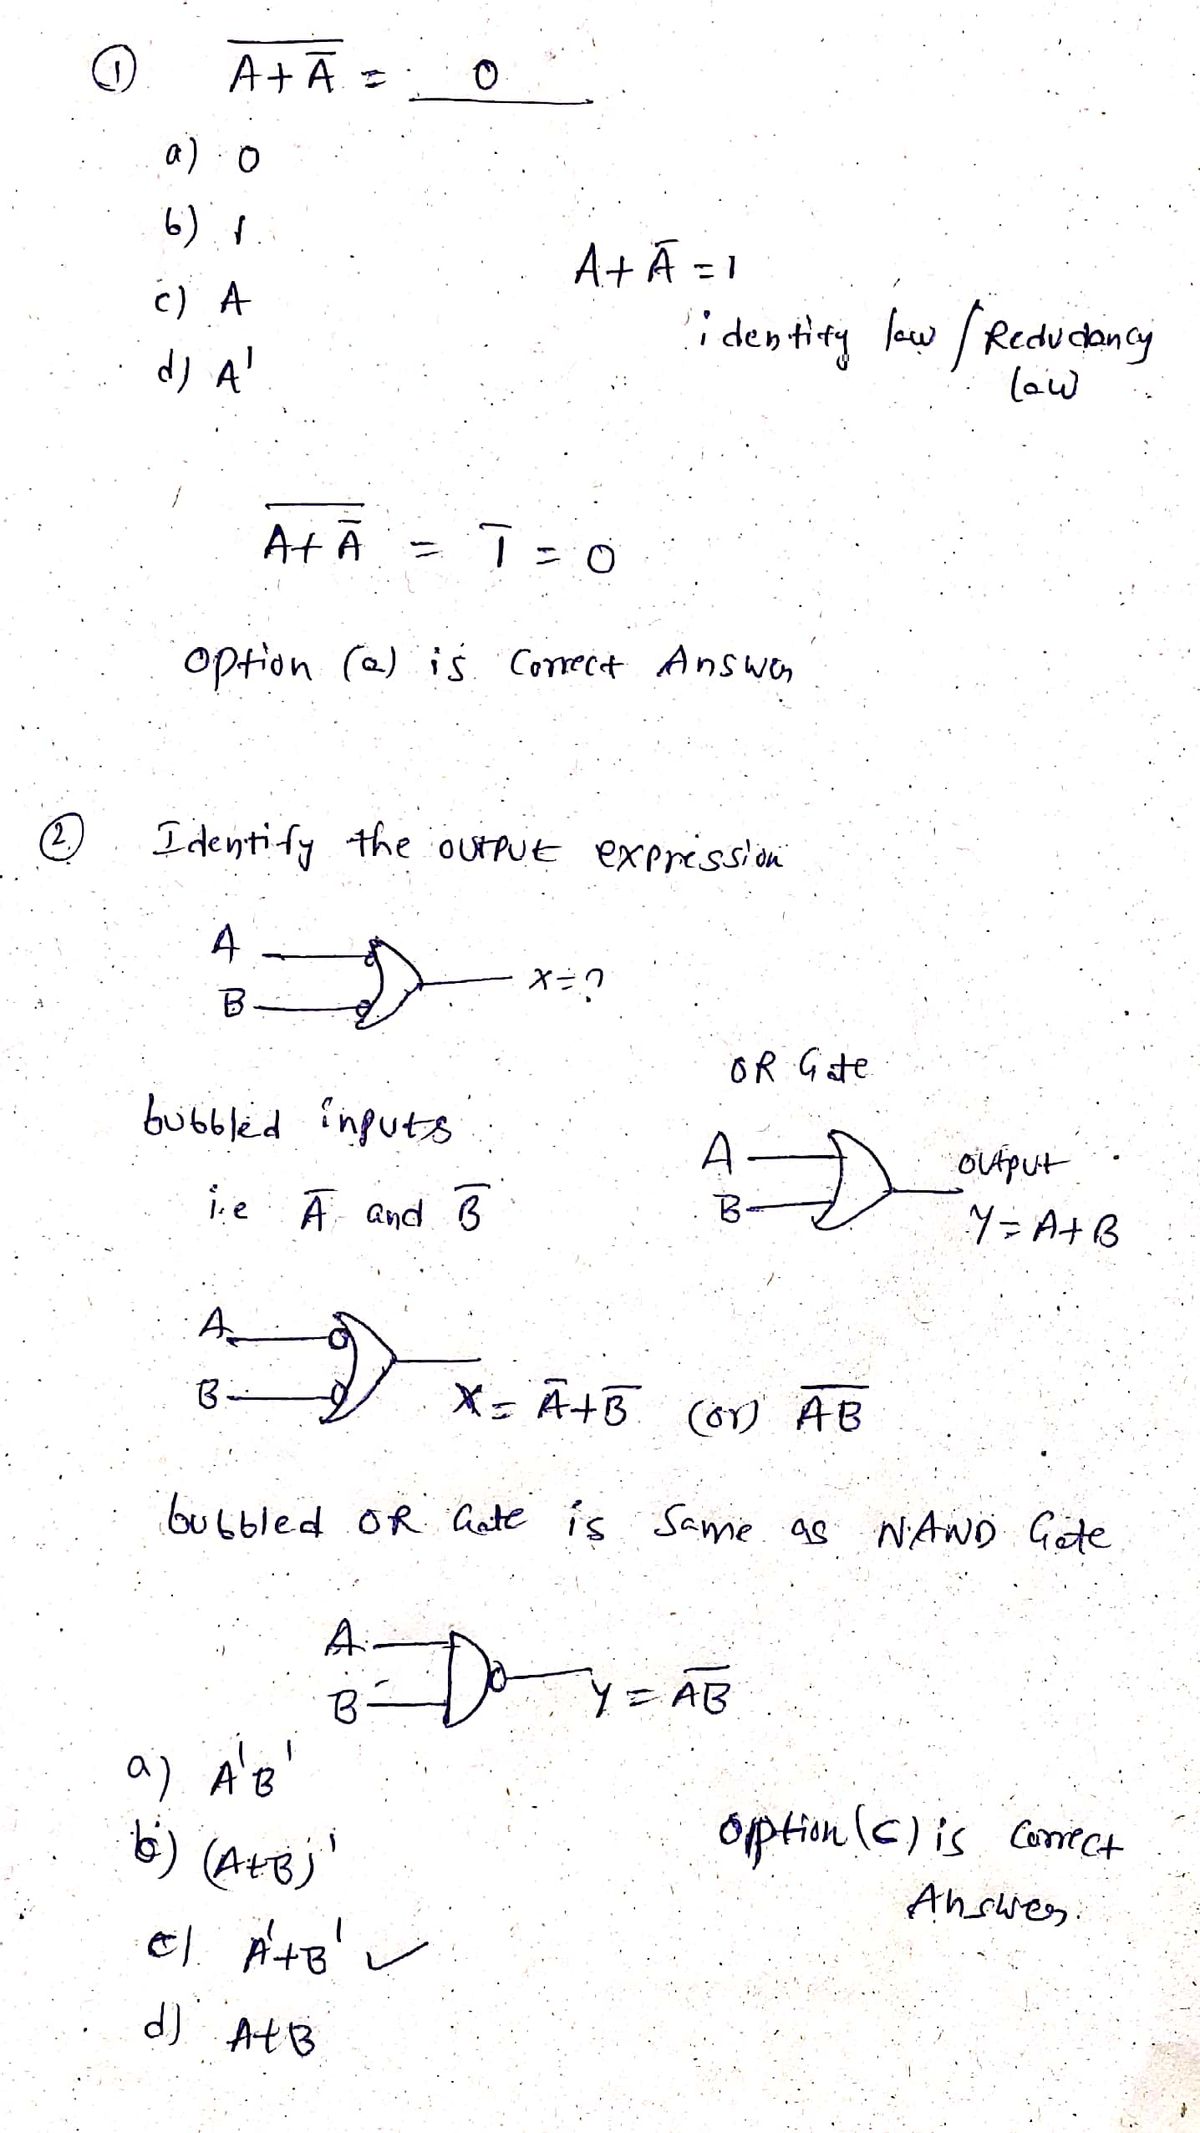 ① $\overline{A+\bar{A}}$ = 0
a) 0
b) 1
c) A
d) A'
A + Ā = 1
identity law / Redudancy
law
$\overline{A+\bar{A}}$ = $\overline{1}$ = 0
option (a) is Correct Answer
② Identify the output expression
A
B
X = ?
bubbled inputs
i.e Ā and B̄
OR Gate
A
B
output
Y = A+B
A
B
X = Ā+B̄ (or) $\overline{AB}$
bubbled OR Gate is Same as NAND Gate
A
B
Y = $\overline{AB}$
a) A'B'
b) (A+B)'
c) A'+B' ✓
d) A+B
option (c) is Correct
Answer.